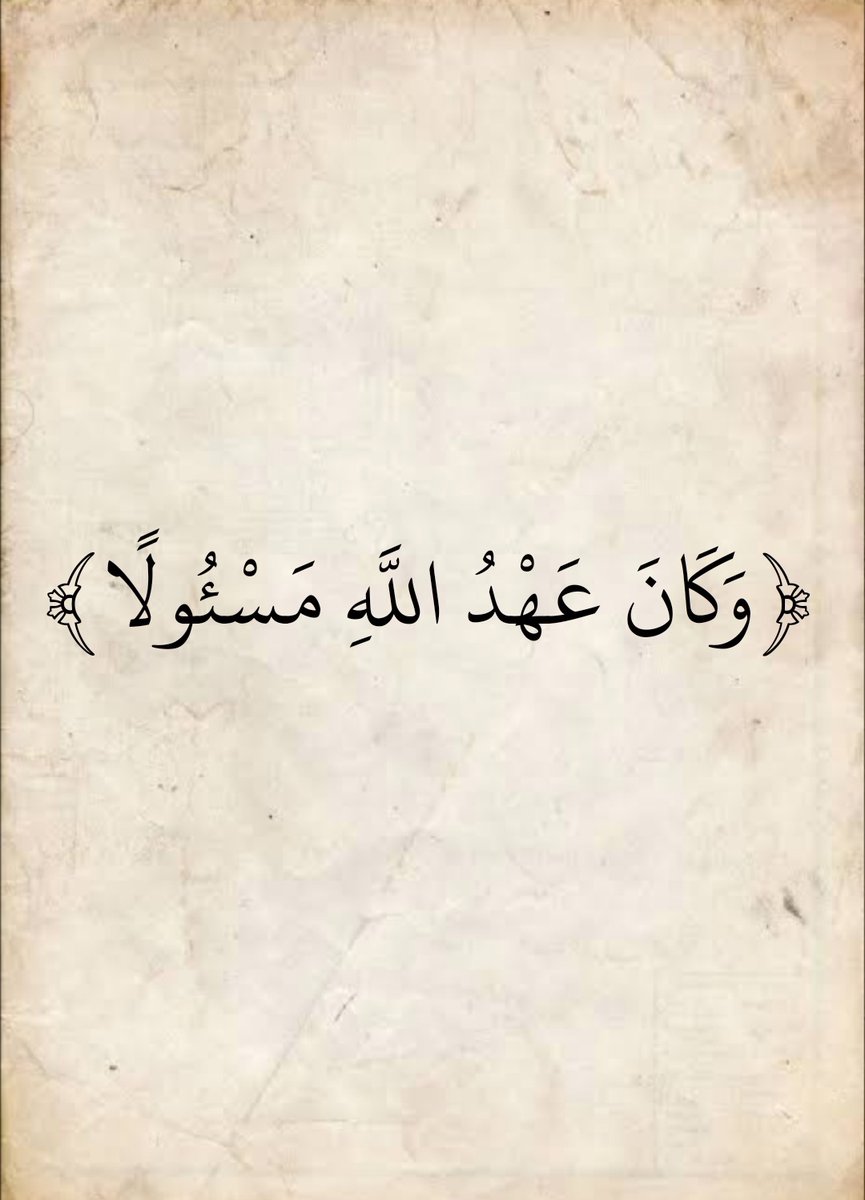 ﴿وَكَانَ عَهْدُ اللَّهِ مَسْئُولًا﴾